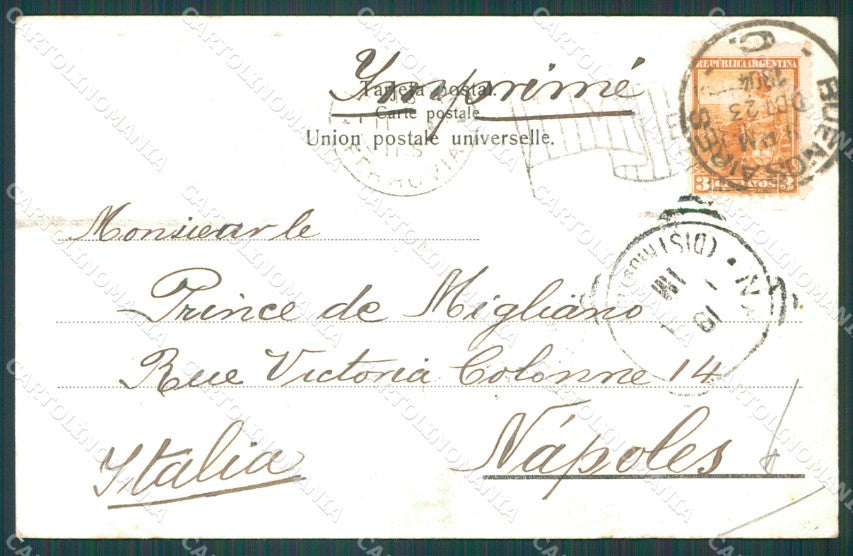 Imprimé
Tarjeta postal.
Carte postale
Union postale universelle.
REPÚBLICA ARGENTINA
3 CENTAVOS 3
BUENOS AIRES
1904
23
PM
Monsieur le
Prince de Migliano
Rue Victoria Colonne 14
Nápoles
Italia
CARTOLINOMANIA